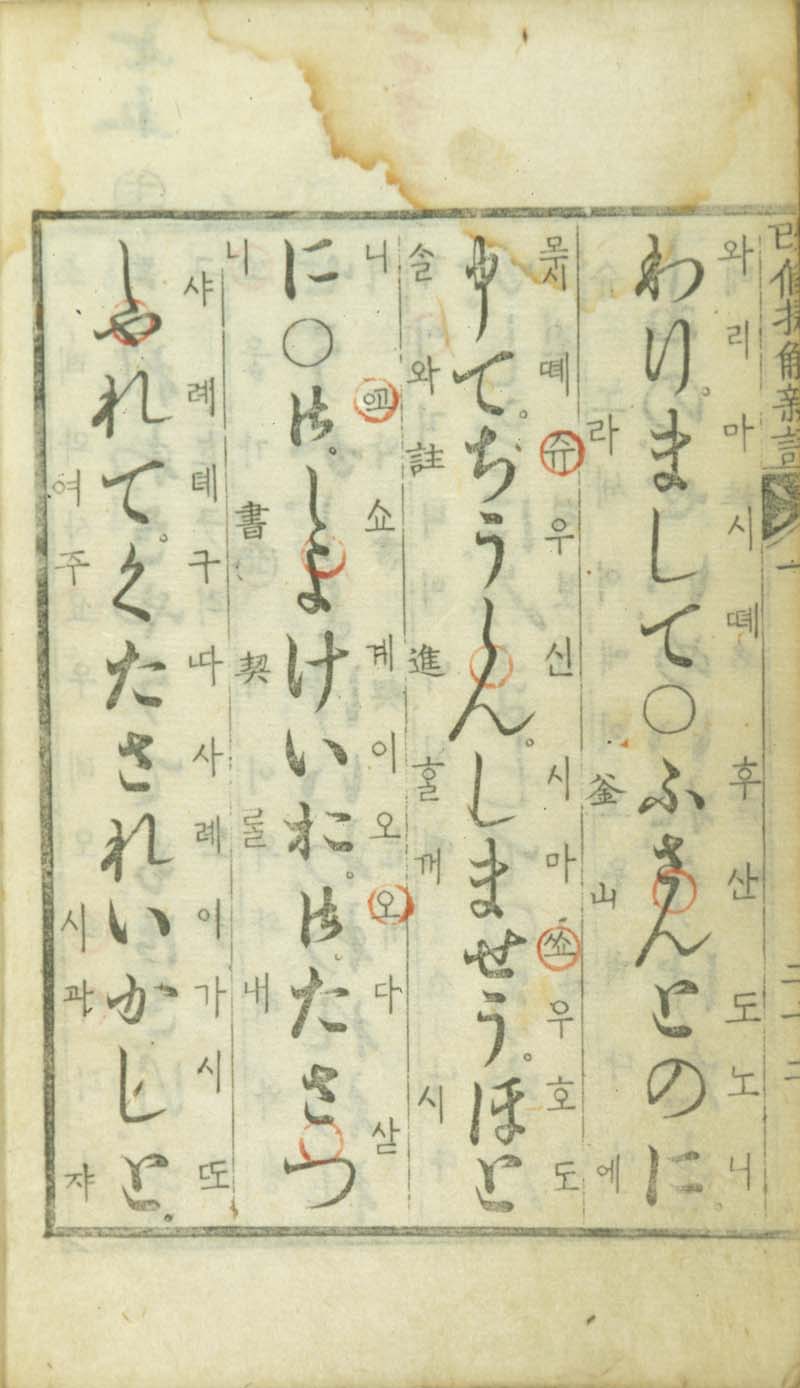 改修捷解新語 一 二十二
와리마시뗴 후산도노니
わり。まして○ふさんとのに。
라 釜山에
시뗴쥬우신시마쑈우호도
申て。ぢうしん。しませう。ほと
솔와 註進홀께 시
니 쇼계이오오다삳
に○御。しよけいお。御。たさつ
니 書契롤 내
샤례톄구따사례이가시또
しやれて。くたされいかしと。
여주시과쟈